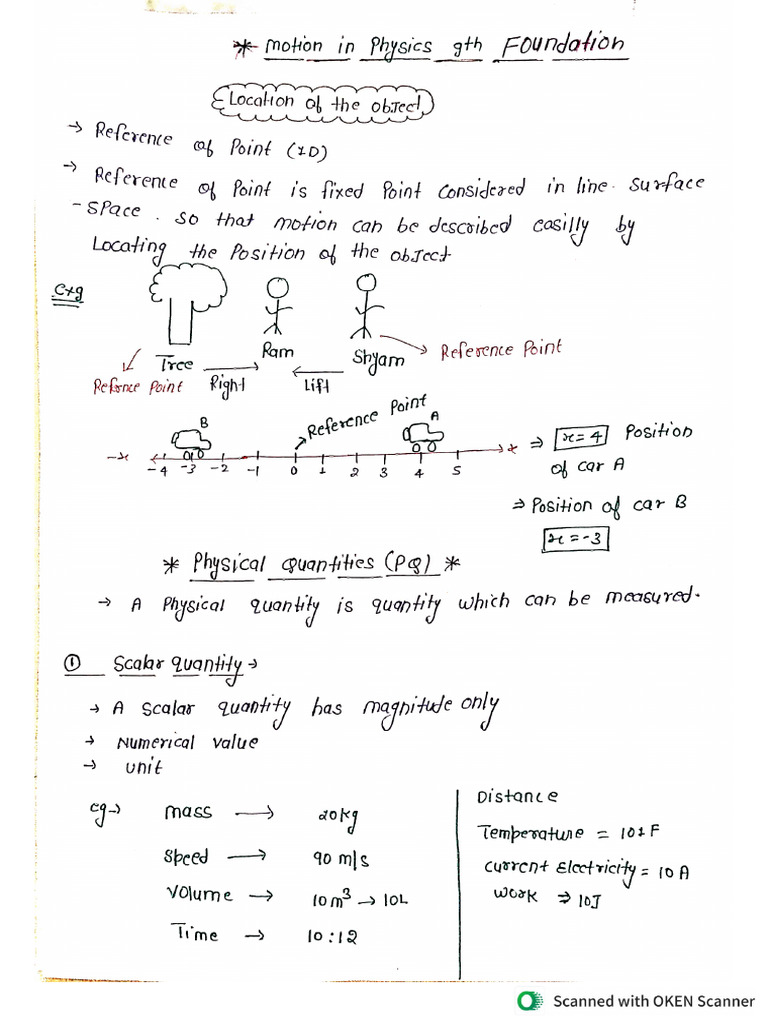 * Motion in Physics 9th Foundation
Location of the object
→ Reference of Point (1D)
→ Reference of Point is fixed Point considered in line. surface
- space. so that motion can be described easilly by
Locating the Position of the object
Exg
Tree Ram Shyam → Reference Point
Refrnce Point Right Lift
B Reference Point A
-x -4 -3 -2 -1 0 1 2 3 4 5 x ⇒ x=4 Position
of car A
⇒ Position of car B
x=-3
* Physical Quantities (PQ) *
→ A Physical quantity is quantity which can be measured.
① Scalar quantity →
→ A scalar quantity has magnitude only
→ Numerical value
→ unit
eg→ mass → 20kg
Speed → 90 m/s
Volume → 10m³ → 10L
Time → 10:12
Distance
Temperature = 101F
Current Electricity = 10 A
Work ⇒ 10J
Scanned with OKEN Scanner